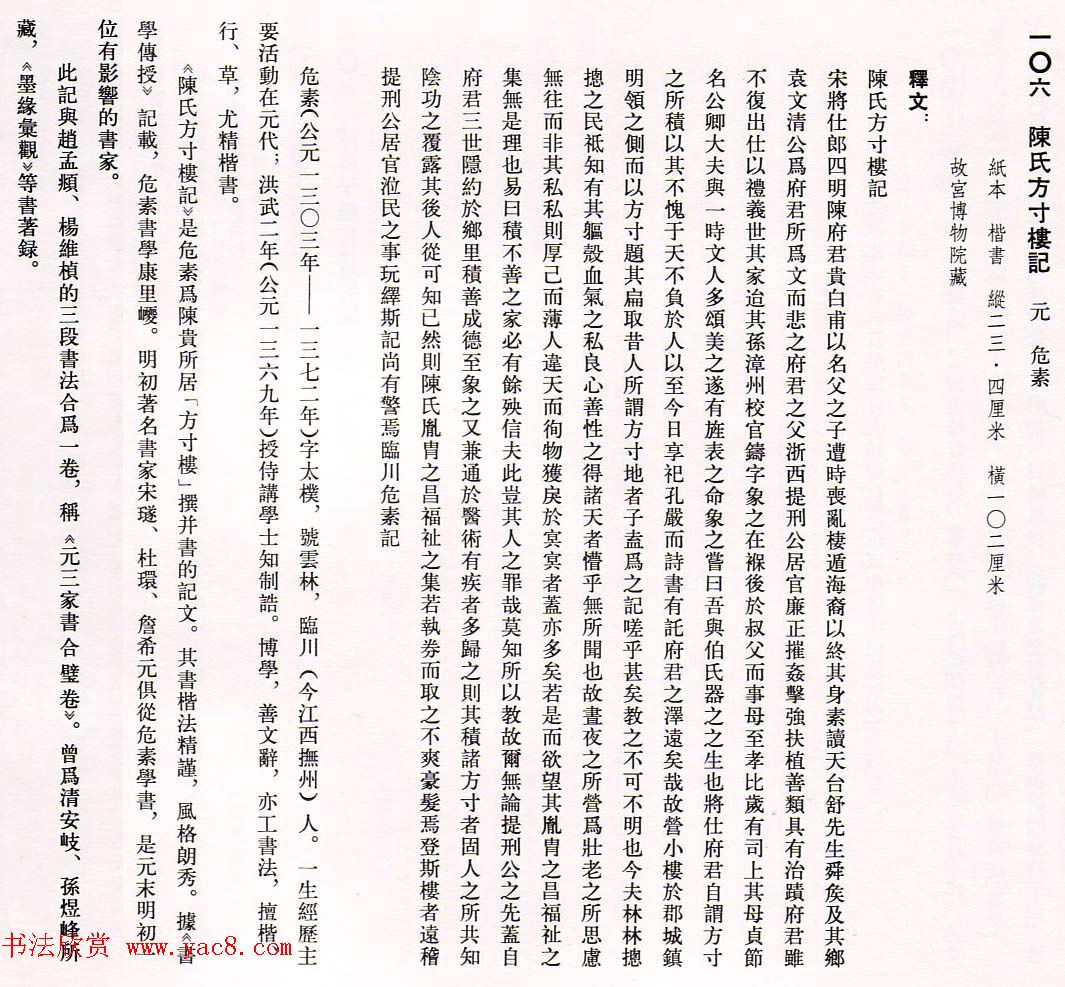 一〇六　陳氏方寸樓記　元　危素
紙本　楷書　縱二三·四厘米　橫一〇二厘米
故宮博物院藏
釋文：
陳氏方寸樓記
宋將仕郎四明陳府君貴白甫以名父之子遭時喪亂棲遁海裔以終其身素讀天台舒先生舜矦及其鄉
袁文清公爲府君所爲文而悲之府君之父浙西提刑公居官廉正摧姦擊強扶植善類具有治蹟府君雖
不復出仕以禮義世其家迨其孫漳州校官鑄字象之在褓後於叔父而事母至孝比歲有司上其母貞節
名公卿大夫與一時文人多頌美之遂有旌表之命象之嘗曰吾與伯氏器之之生也將仕府君自謂方寸
之所積以其不愧于天不負於人以至今日享祀孔嚴而詩書有託府君之澤遠矣哉故營小樓於郡城鎮
明領之側而以方寸題其扁取昔人所謂方寸地者子盍爲之記嗟乎甚矣教之不可不明也今夫林林摠
摠之民祗知有其軀殼血氣之私良心善性之得諸天者懵乎無所聞也故晝夜之所營爲壯老之所思慮
無往而非其私私則厚己而薄人違天而徇物獲戾於冥冥者蓋亦多矣若是而欲望其胤胄之昌福祉之
集無是理也易曰積不善之家必有餘殃信夫此豈其人之罪哉莫知所以教故爾無論提刑公之先蓋自
府君三世隱約於鄉里積善成德至象之又兼通於醫術有疾者多歸之則其積諸方寸者固人之所共知
陰功之覆露其後人從可知已然則陳氏胤胄之昌福祉之集若執券而取之不爽豪髮焉登斯樓者遠稽
提刑公居官涖民之事玩繹斯記尚有警焉臨川危素記
危素（公元一三〇三年——一三七二年）字太樸，號雲林，臨川（今江西撫州）人。一生經歷主
要活動在元代；洪武二年（公元一三六九年）授侍講學士知制誥。博學，善文辭，亦工書法，擅楷、
行、草，尤精楷書。
《陳氏方寸樓記》是危素爲陳貴所居「方寸樓」撰并書的記文。其書楷法精謹，風格朗秀。據《書
學傳授》記載，危素書學康里巙。明初著名書家宋璲、杜環、詹希元俱從危素學書，是元末明初一
位有影響的書家。
此記與趙孟頫、楊維楨的三段書法合爲一卷，稱《元三家書合璧卷》。曾爲清安岐、孫煜峰所
藏，《墨緣彙觀》等書著録。
书法欣赏 www.yac8.com